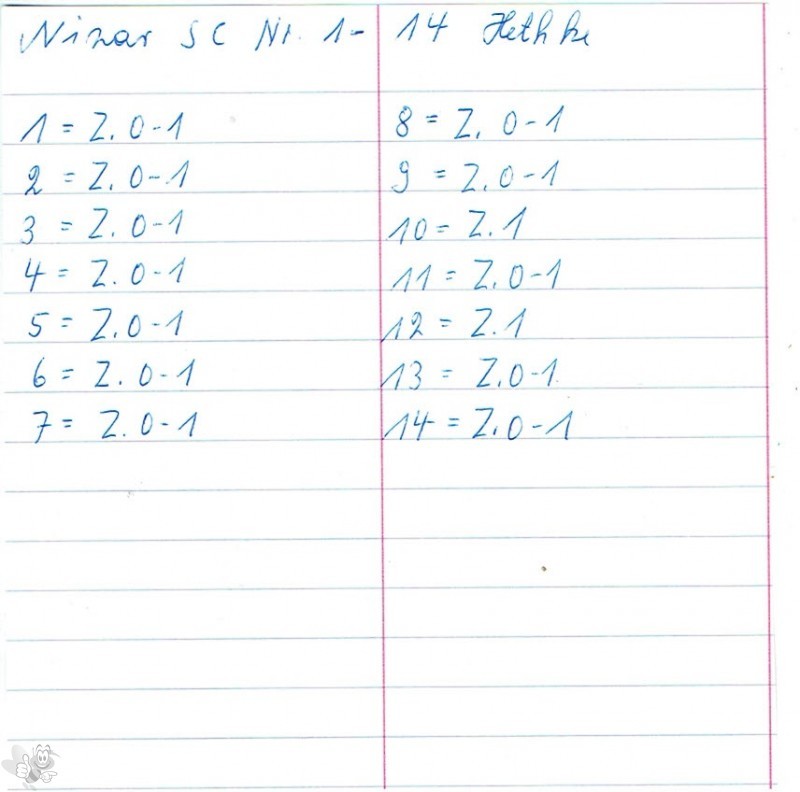 Nizar SC Nr. 1-14 Hethke
1 = Z. 0-1
2 = Z. 0-1
3 = Z. 0-1
4 = Z. 0-1
5 = Z. 0-1
6 = Z. 0-1
7 = Z. 0-1
8 = Z. 0-1
9 = Z. 0-1
10 = Z. 1
11 = Z. 0-1
12 = Z. 1
13 = Z. 0-1
14 = Z. 0-1